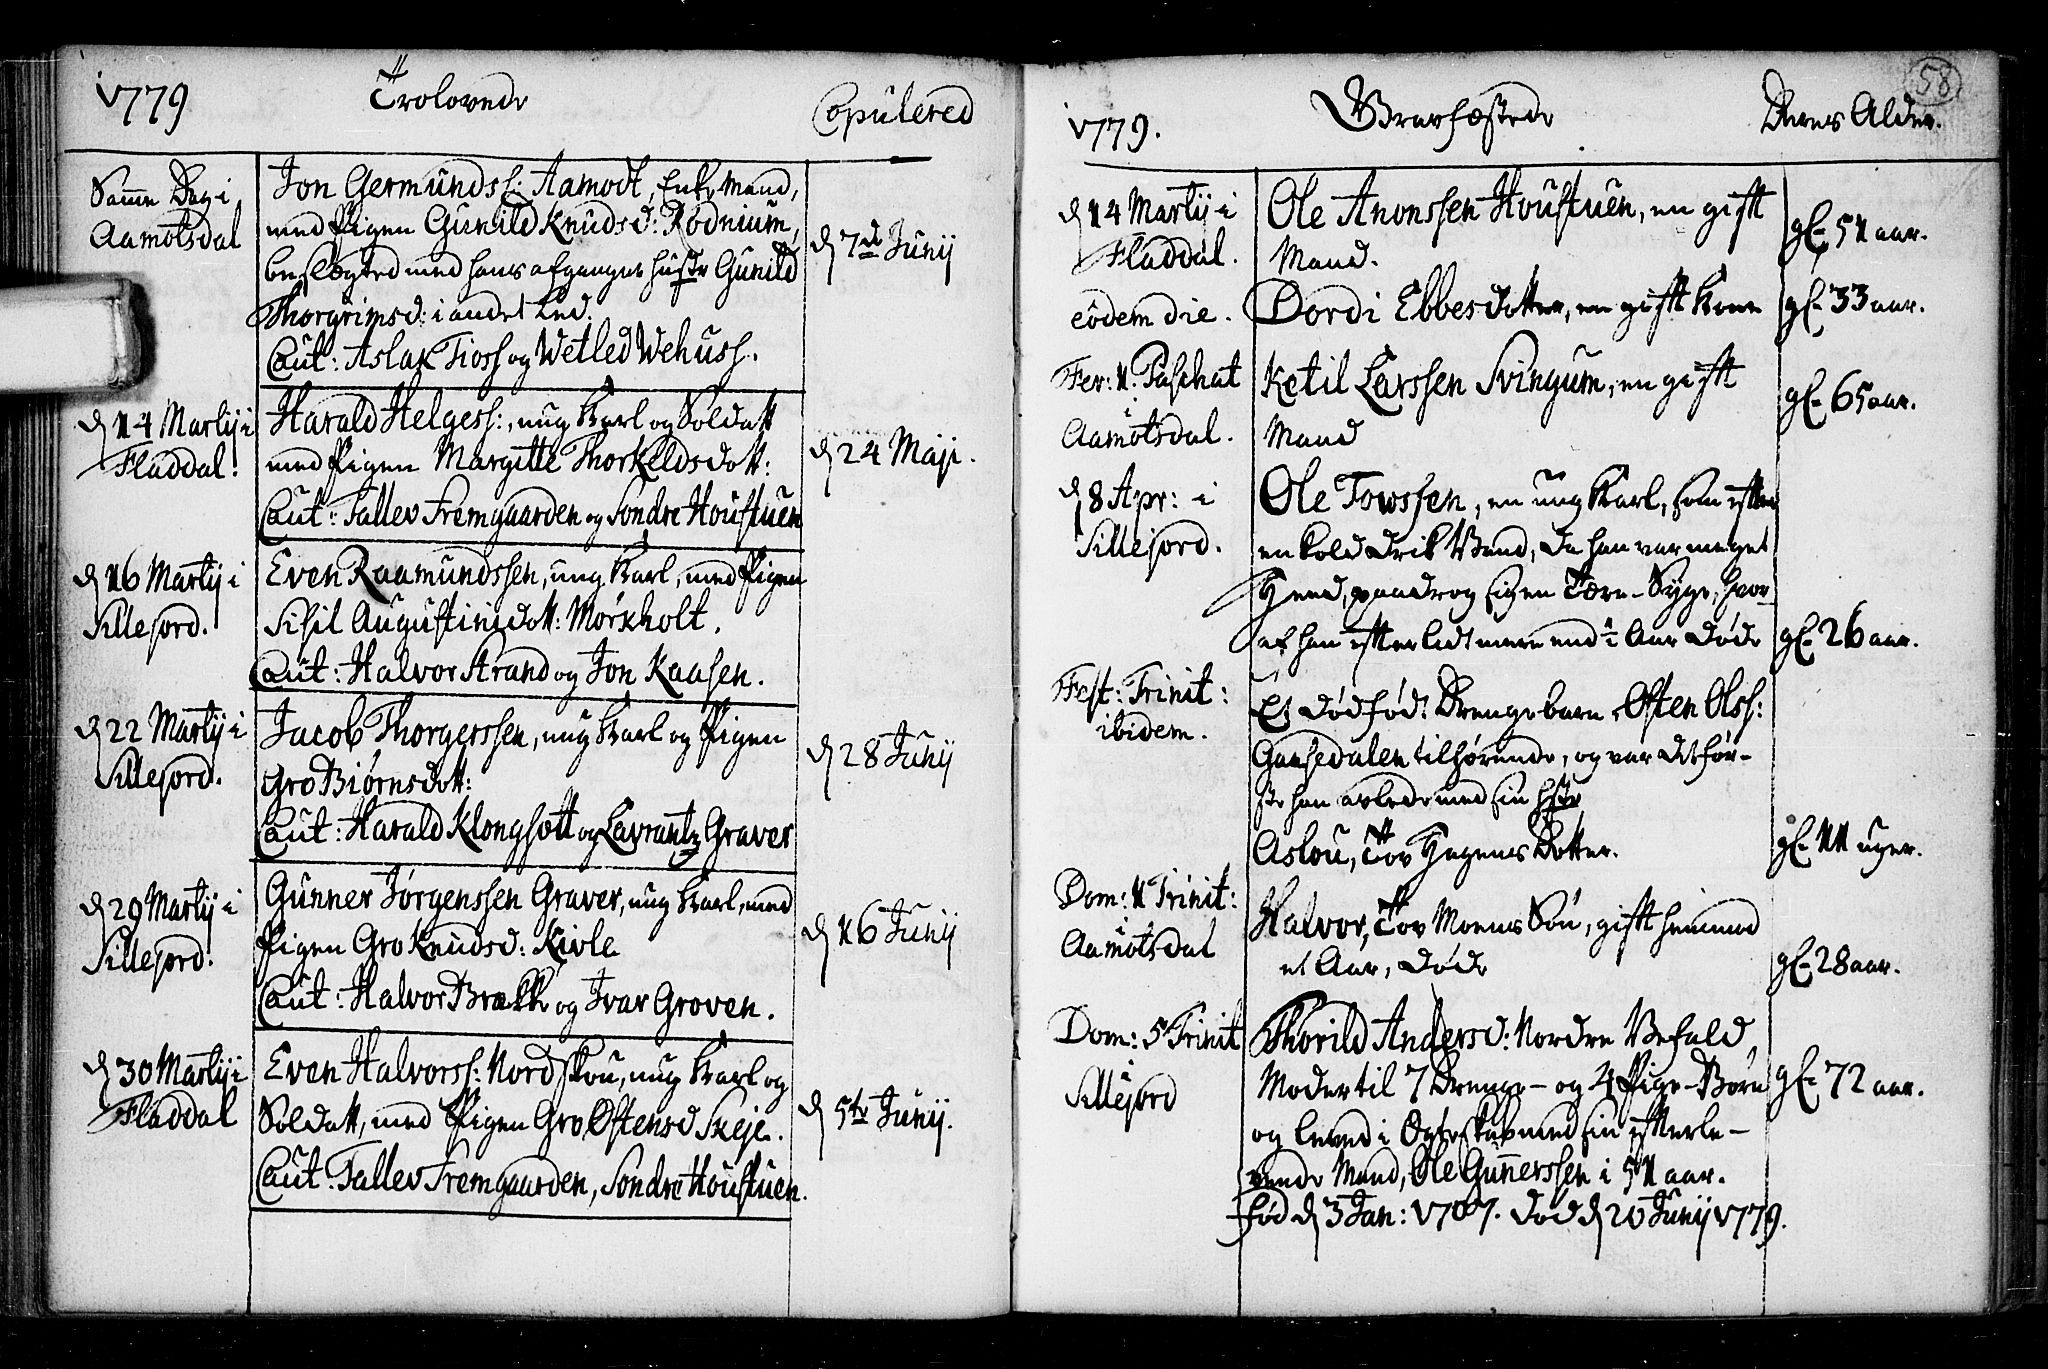 1779
Trolovede
Copulered
Samme Dag i
Aamotsdal
Jon Germundss: Aamodt, Enke Mand,
med Pigen Gunild Knudsd: Rodnium,
beslægted med hans afgangne hustr Gunild
Thorgrimsd: i andet Led.
Caut: Aslak Tioss og Wetled Wehuss.
d 7de Junij
d 14 Martij i
Fladdal.
Harald Helgess:, ung Karl og Soldatt
med Pigen Margitte Thorkeldsdott:
Caut: Tallev Fremgaarden og Söndre Houstuen
d 24 Maji.
d 16 Martij i
Sillejord.
Even Raamundssen, ung Karl, med Pigen
Sisil Augustinidott: Mörkholt.
Caut: Halvor Strand og Jon Kaasen.
d 22 Martij i
Sillejord.
Jacob Thorgerssen, ung Karl og Pigen
Gro Biörnsdott:
Caut: Harald Klongsött og Lavrantz Graver
d 28 Junij
d 29 Martij i
Sillejord.
Gunner Jörgenssen Graver, ung Karl, med
Pigen Gro Knudsd: Kivle
Caut: Halvor Brække og Ivar Groven.
d 16 Junij
d 30 Martij i
Fladdal
Even Halvorss: Nordskou, ung Karl og
Soldatt, med Pigen Gro Östensd Skeje.
Caut: Tallev Fremgaarden, Söndre Houstuen.
d 5te Junij.
58
1779.
Begravfæstede
Deres Alder.
d 14 Martij i
Fladdal.
Ole Anonssen Houstuen, en gift
Mand.
gl. 51 aar.
eodem die.
Dordi Ebbesdotter, en gift Kone
gl. 33 aar.
Fer: 1. Paschat
i
Aamotsdal.
Ketil Larssen Svingum, en gift
Mand
gl. 65 aar.
d 8 Apr: i
Sillejord.
Ole Towssen, en ung Karl, som efter
en kold Drik Vand, da han var meget
heed, paadrog sigen Tære-Syge, hvor
af han efter lidt mere end 1/2 Aar döde
gl. 26 aar.
Fest: Trinit:
ibidem.
Et dödföd: Drengebarn, Östen Olss:
Gaasedalen tilhörende, og var det för-
ste han avlede med sin hstr
Aslou, Tov Hagenes Dotter.
gl. 11 uger.
Dom: 1 Trinit:
i
Aamotsdal
Halvor, Tov Moenes Sön, gift henimod
et Aar, döde
gl. 28 aar.
Dom: 5 Trinit
i
Sillejord
Thorild Andersd: Nordre Vefald,
Moder til 7 Drenge- og 4 Pige-Börn
og leved i Ögteskab med sin efterle-
vende Mand, Ole Gunnerssen i 51 aar.
föd d 3 Jan: 1707. död d 20 Junij 1779.
gl. 72 aar.